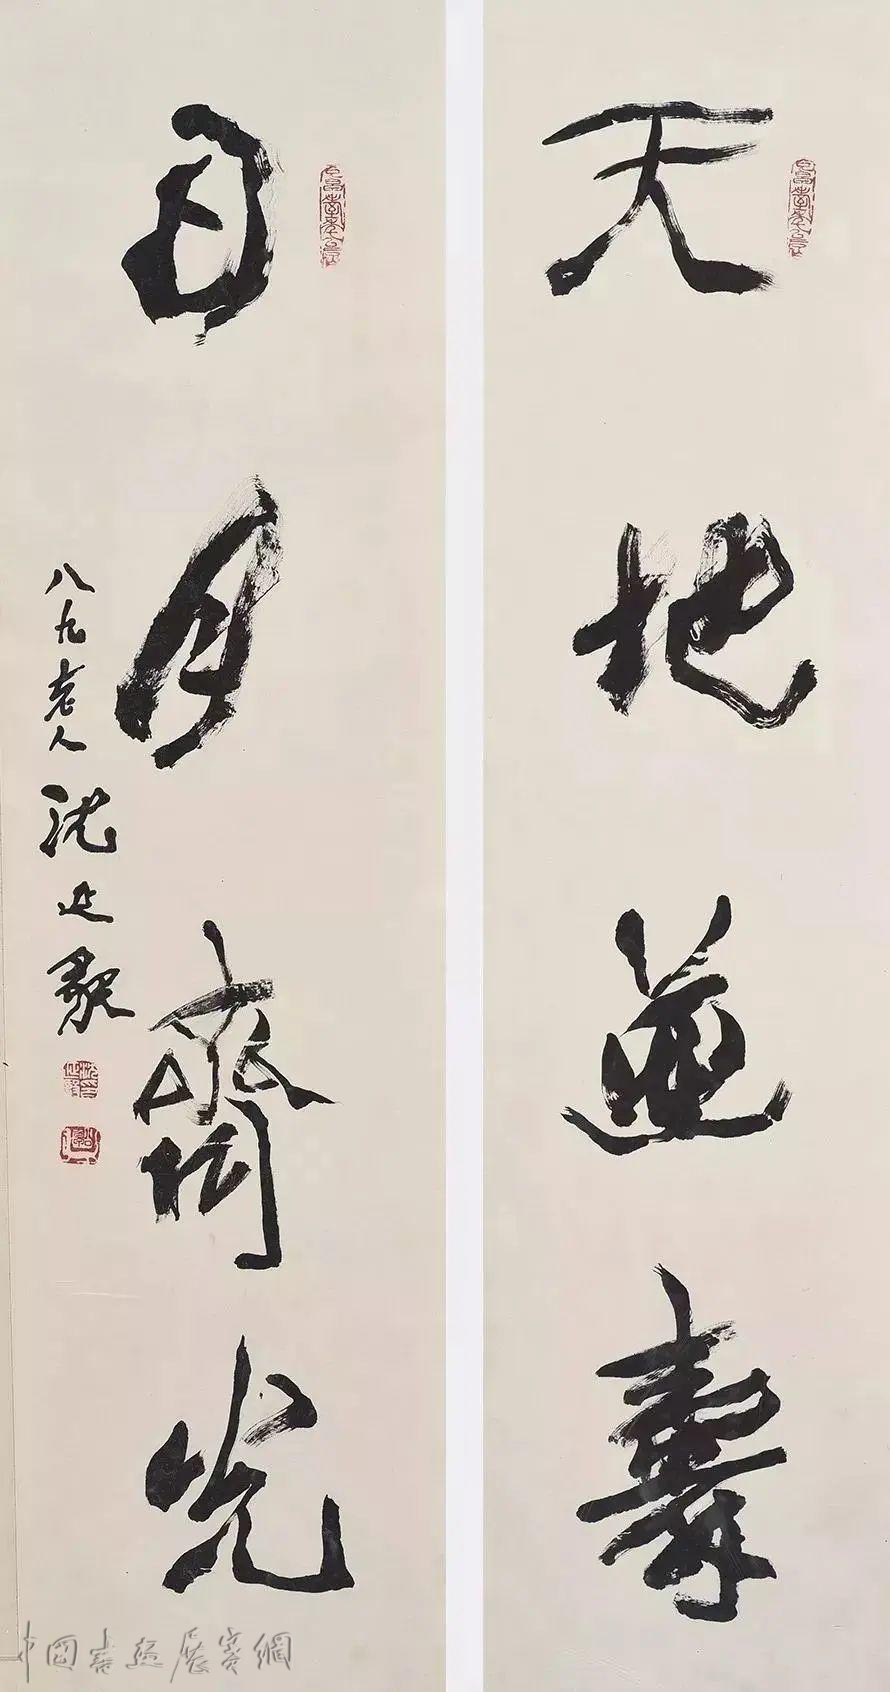 天地並壽
日月齊光
八九老人沈延毅
中國書画展賽網